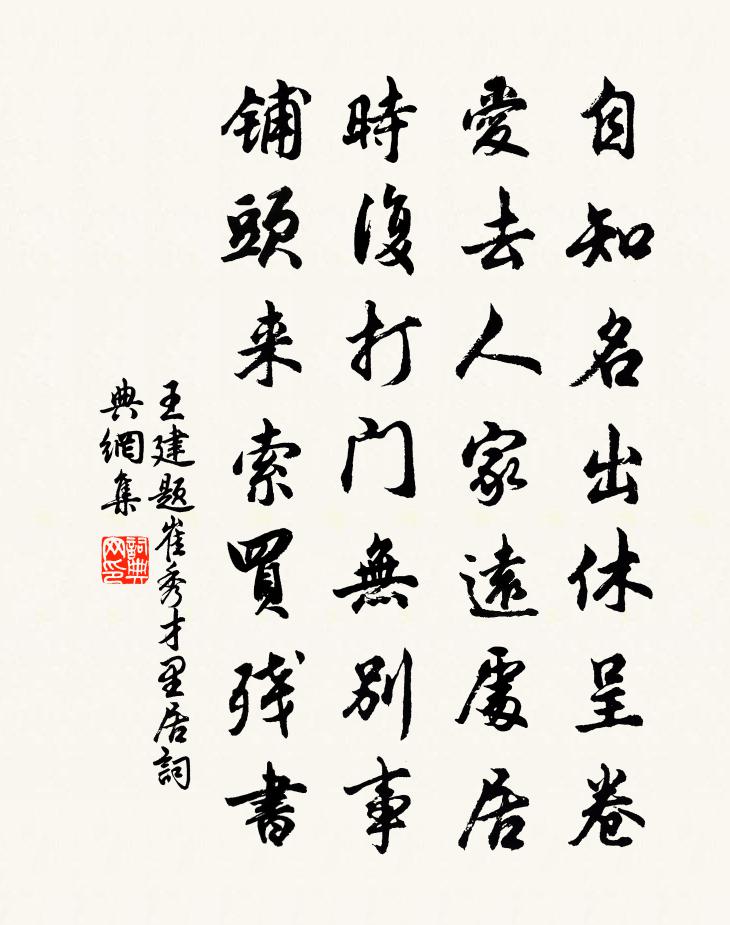 自知名出休呈卷
愛去人家遠處居
時復打门無别事
铺頭来索買残書
王建題崔秀才里居詞
典網集
詞典网印